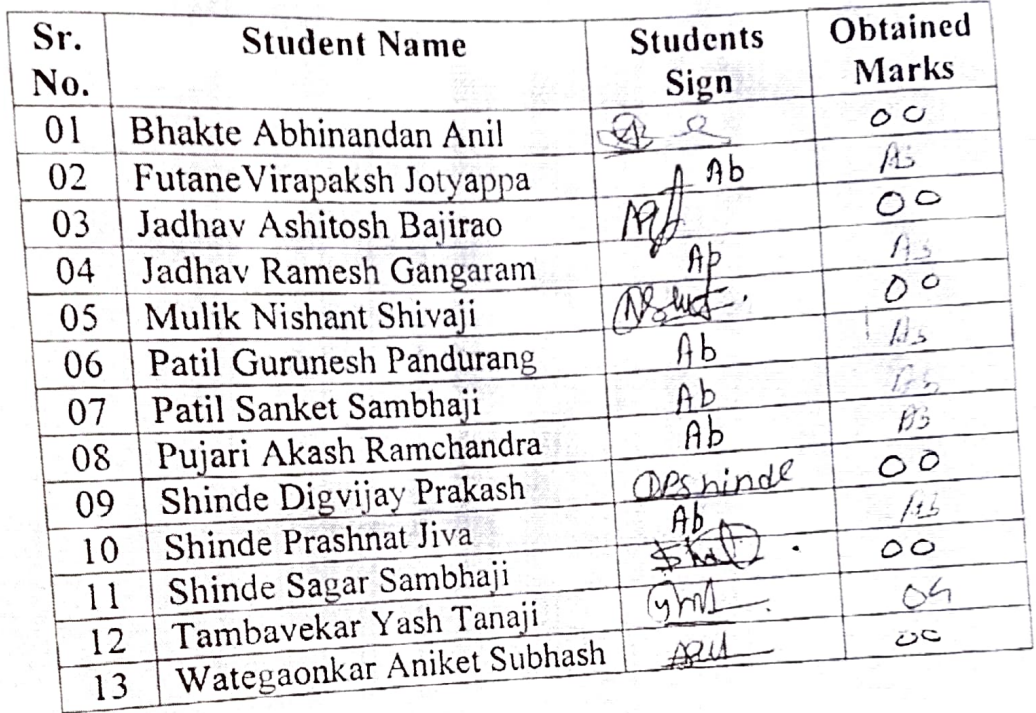 Sr. No. Student Name Students Sign Obtained Marks
01 Bhakte Abhinandan Anil 00
02 FutaneVirapaksh Jotyappa Ab Ab
03 Jadhav Ashitosh Bajirao 00
04 Jadhav Ramesh Gangaram Ab Ab
05 Mulik Nishant Shivaji 00
06 Patil Gurunesh Pandurang Ab Ab
07 Patil Sanket Sambhaji Ab Ab
08 Pujari Akash Ramchandra Ab Ab
09 Shinde Digvijay Prakash DPShinde 00
10 Shinde Prashnat Jiva Ab Ab
11 Shinde Sagar Sambhaji 00
12 Tambavekar Yash Tanaji 04
13 Wategaonkar Aniket Subhash 00